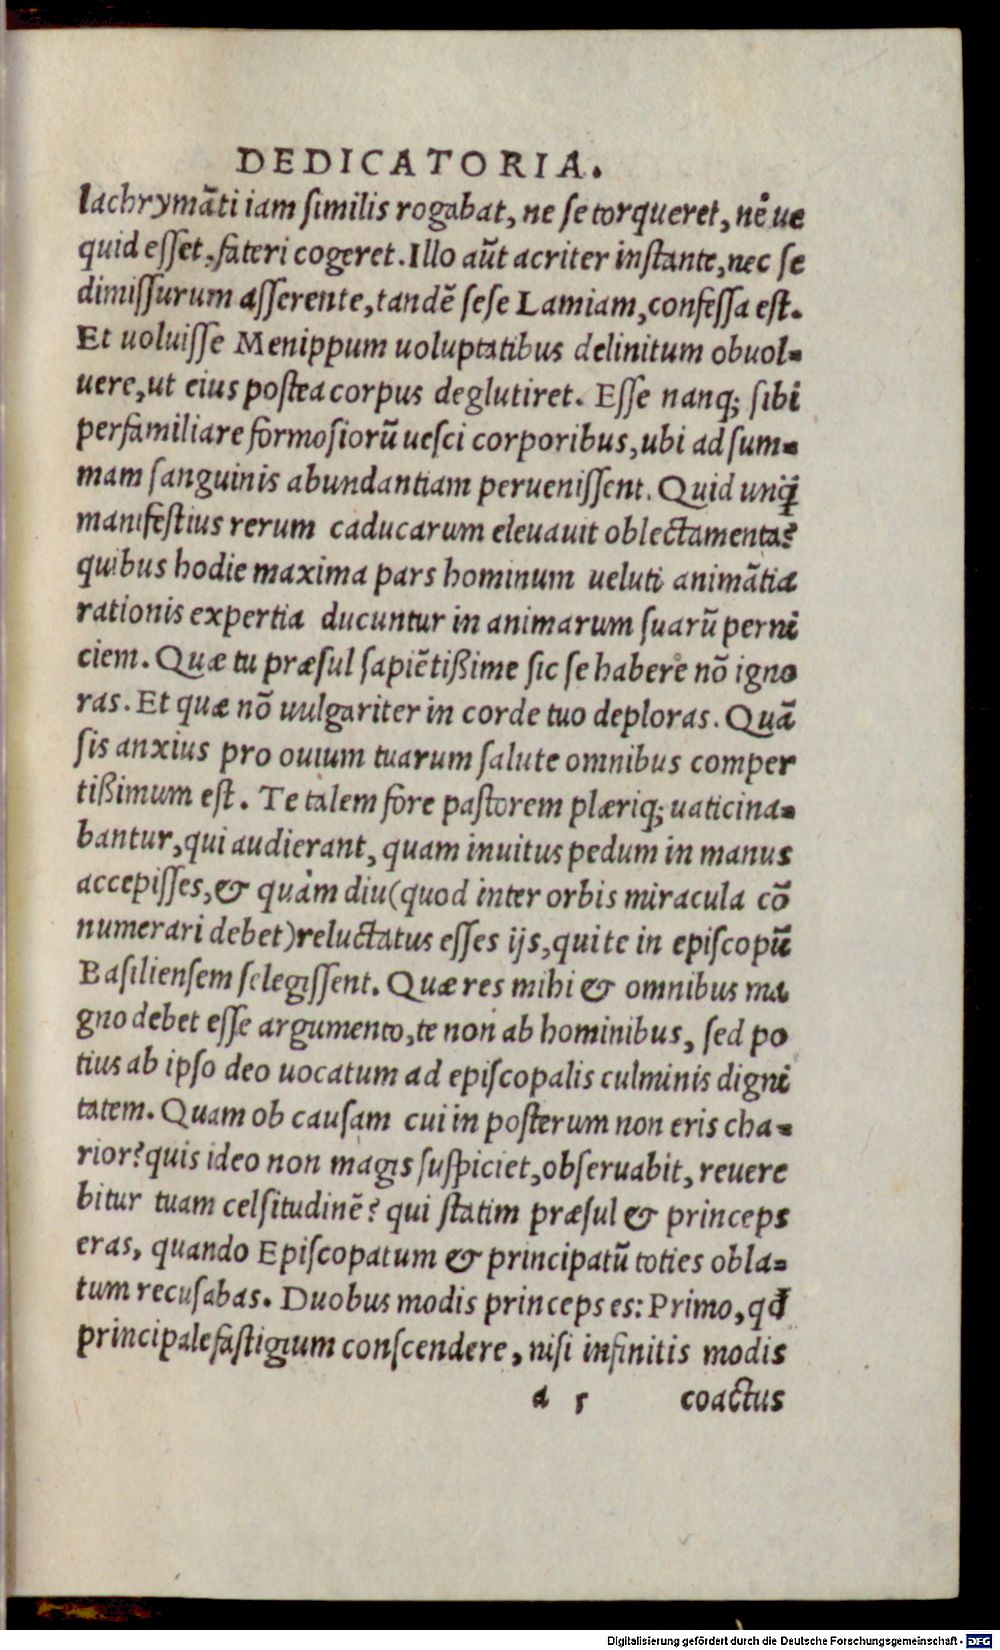 DEDICATORIA.
lachrymãti iam ſimilis rogabat, ne ſe torqueret, néue
quid eſſet, fateri cogeret. Illo aũt acriter inſtante, nec ſe
dimiſſurum aſſerente, tandẽ ſeſe Lamiam, confeſſa eſt.
Et uoluiſſe Menippum uoluptatibus delinitum obuol=
uere, ut eius poſtea corpus deglutiret. Eſſe nanq; ſibi
perfamiliare formoſiorũ ueſci corporibus, ubi ad ſum=
mam ſanguinis abundantiam perueniſſent. Quid unq̃
manifeſtius rerum caducarum eleuauit oblectamenta?
quibus hodie maxima pars hominum ueluti animãtia
rationis expertia ducuntur in animarum ſuarũ perni
ciem. Quæ tu præſul ſapiẽtißime ſic ſe habere nõ igno
ras. Et quæ nõ uulgariter in corde tuo deploras. Quã
ſis anxius pro ouium tuarum ſalute omnibus comper
tißimum eſt. Te talem fore paſtorem plæriq; uaticina=
bantur, qui audierant, quam inuitus pedum in manus
accepiſſes, & quàm diu (quod inter orbis miracula cõ
numerari debet) reluctatus eſſes ijs, qui te in epiſcopũ
Baſilienſem ſelegiſſent. Quæ res mihi & omnibus ma
gno debet eſſe argumento, te non ab hominibus, ſed po
tius ab ipſo deo uocatum ad epiſcopalis culminis digni
tatem. Quam ob cauſam cui in poſterum non eris cha=
rior? quis ideo non magis ſuſpiciet, obſeruabit, reuere
bitur tuam celſitudinẽ? qui ſtatim præſul & princeps
eras, quando Epiſcopatum & principatũ toties obla=
tum recuſabas. Duobus modis princeps es: Primo, qđ
principale faſtigium conſcendere, niſi infinitis modis
a 5 coactus
Digitalisierung gefördert durch die Deutsche Forschungsgemeinschaft - DFG